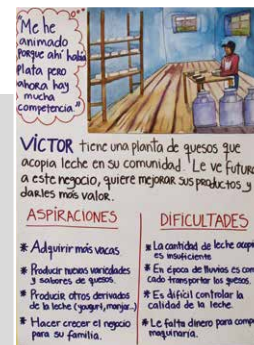 Me he
animado
porque ahí había
plata pero
ahora hay
mucha
competencia."
VÍCTOR tiene una planta de quesos que
acopia leche en su comunidad. Le ve futuro
a este negocio, quiere mejorar sus productos y
darles más valor.
ASPIRACIONES
* Adquirir más vacas
* Producir nuevas variedades
y sabores de quesos.
* Producir otros derivados
de la leche (yogurt, manjar..)
* Hacer crecer el negocio
para su familia.
DIFICULTADES
* La cantidad de leche acopi
es insuficiente.
* En época de lluvias es com
cado transportar los quesos.
* Es difícil controlar la
calidad de la leche.
* Le falta dinero para comp
maquinaria.